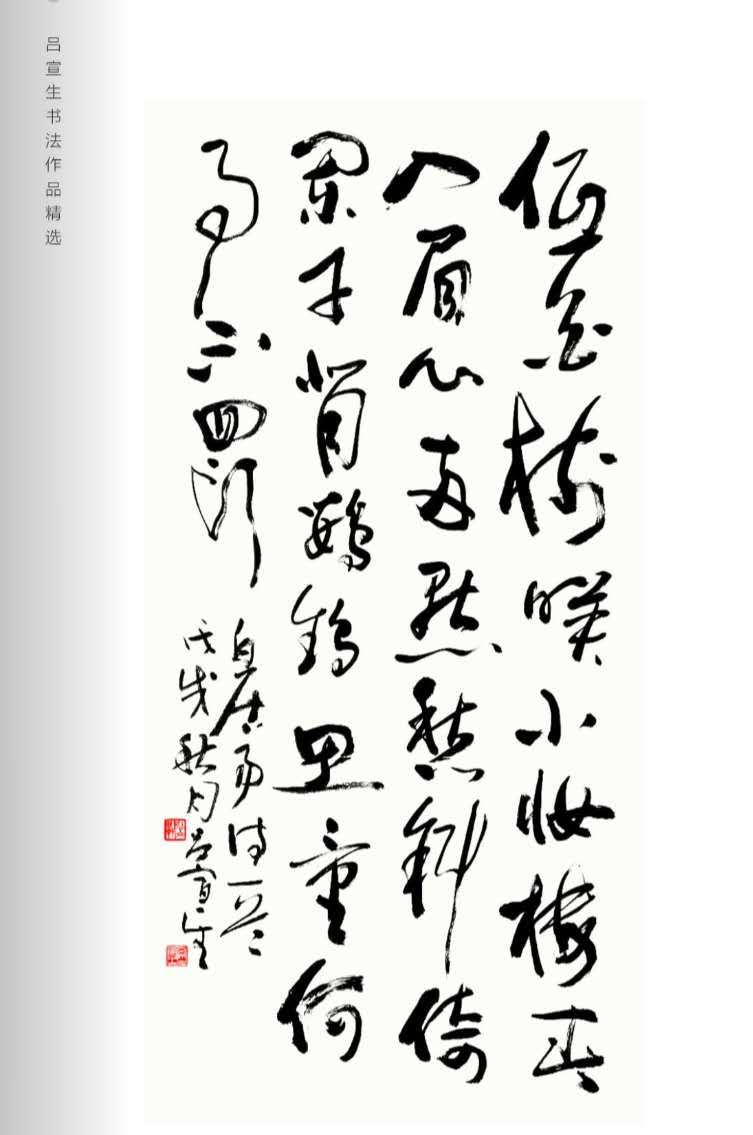 吕宣生书法作品精选
低花树映小妆楼春
入眉心两点愁斜倚
栏干背鹦鹉思量何
事不回头
白居易诗一首
戊戌秋月吕宣生